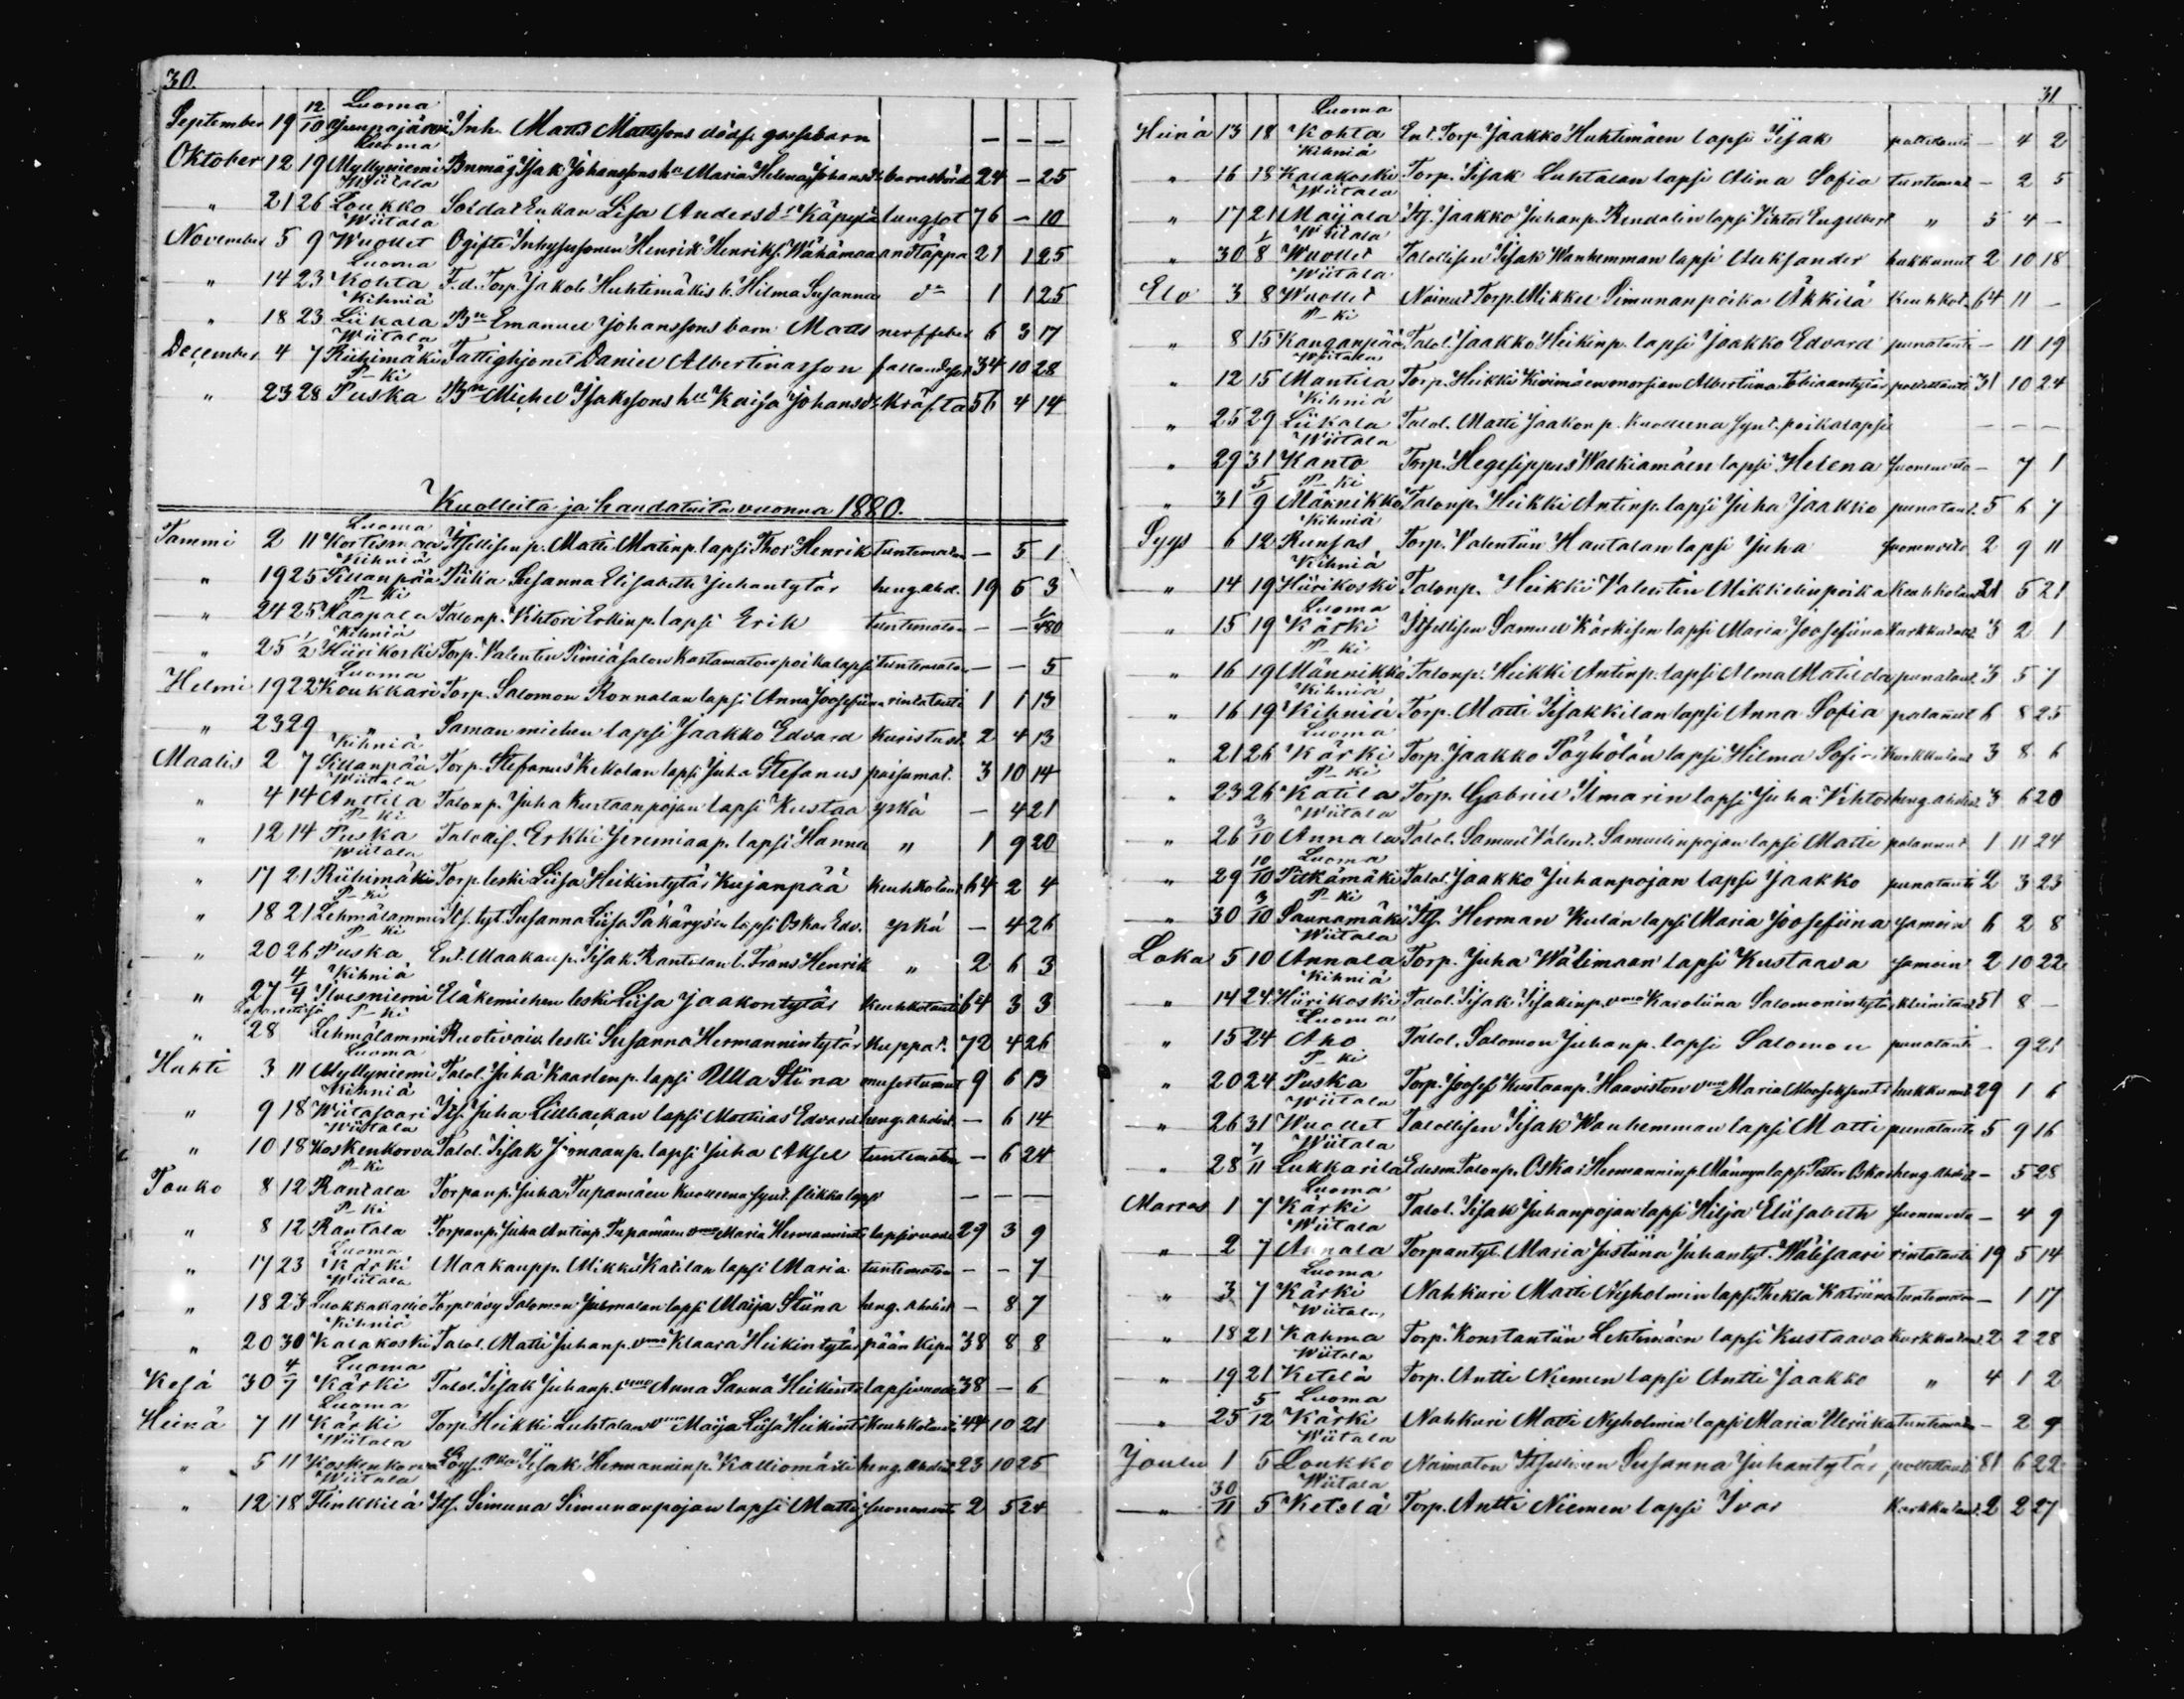 30.
September 19 12/10 Luoma Inh. Matts Mattssons dödf. gossebarn — — —
Oktober 12 19 Luoma Myllyniemi Bnmåg Isak Johanssons hu Maria Helena Johansdr barnsbörd 24 — 25
" 21 26 Wiitala Loukko Soldat Enkan Lisa Andersdr Käpylä lungsot 76 — 10
November 5 9 Wiitala Wuollet Ogifte Inhysessonen Henrik Henriks. Wähämaa andtäppa 21 1 25
" 14 23 Luoma Kohta F.d. Torp. Jakob Huhtimäkis b. Hilma Susanna do 1 1 25
" 18 23 Kihniä Liikala Bn Emanuel Johanssons barn Matts nerffeber 6 3 17
December 4 7 Wiitala Riihimäki Fattighjonet Daniel Albertinasson fallandesot 34 10 28
" 23 28 P-ki Puska Bn Michel Isakssons hu Kaisa Johansdr Kräfta 56 4 14
Kuolleita ja haudatuita vuonna 1880.
Tammi 2 11 Luoma Kortesmaa Itsellisen p. Matti Matinp. lapsi Thor Henrik tuntematon — 5 1
" 19 25 Kihniä Sillanpää Piika Susanna Elisabeth Juhantytär heng. ahd. 19 5 3
" 24 25 P-ki Haapala Talonp. Vihtori Erkinp. lapsi Erik tuntematon — —
" 25 1/2 Kihniä Hiirikoski Torp. Valentin Pimiäsalon Kastamaton poikalapsi tuntematon — — 5
Helmi 19 22 Luoma Koukkari Torp. Salomon Ronnalan lapsi Anna Joosefiina rintatauti 1 1 13
" 23 29 " Saman miehen lapsi Jaakko Edvard kuristust. 2 4 13
Maalis 2 7 Kihniä Sillanpää Torp. Stefanus Kekolan lapsi Juha Stefanus paisumat. 3 10 14
" 4 14 Wiitala Anttila Talonp. Juha Kustaanpojan lapsi Kustaa yskä — 4 21
" 12 14 P-ki Puska Talollis. Erkki Jeremiaap. lapsi Hanna " 1 9 20
" 17 21 Wiitala Riihimäki Torp. leski Liisa Heikintytär Kujanpää keuhkotaut 64 2 4
" 18 21 P-ki Lehmälammi Its. tyt. Susanna Liisa Päkärysen lapsi Oskar Edv. yskä — 4 26
" 20 26 P-ki Puska Ent. Maakaup. Isak Rantalan l. Frans Henrik " 2 6 3
" 27 4/4 Kihniä Ilvesniemi Eläkemiehen leski Liisa Jaakontytär keuhkotauti 64 3 3
" 28 P-ki Lehmälammi Ruotivaiv. leski Susanna Hermannintytär kuppat. 72 4 26
Huhti 3 11 Luoma Myllyniemi Talol. Juha Kaarlenp. lapsi Ulla Stina musertunut 9 6 13
" 9 18 Kihniä Wiitasaari Its. Juha Lillbackan lapsi Mathias Edvard heng. ahdist. — 6 14
" 10 18 Wiitala Koskenkorva Talol. Isak Joonaanp. lapsi Juha Aksel tuntematon — 6 24
Touko 8 12 P-ki Rantala Torpanp. Juha Tupamäen kuolleena synt. flikkalapsi — — —
" 8 12 P-ki Rantala Torpanp. Juha Antinp. Tupamäen vmo Maria Hermannint. lapsivuode 29 3 9
" 17 23 Luoma Kärki Maakaupp. Mikki Katilan lapsi Maria tuntematon — — 7
" 18 23 Wiitala Luokkakallio Torpvävy Salomon Julmalan lapsi Maija Stiina heng. ahdist — 8 7
" 20 30 Kihniä Kalakoski Talol. Matti Juhanp. vmo Klaara Heikintytär pään kipu 38 8 8
Kesä 30 4/7 Luoma Kärki Talol. Isak Juhanp. vmo Anna Sanna Heikint. lapsivuode 38 — 6
Heinä 7 11 Luoma Kärki Torp. Heikki Luhtalan vmo Maija Liisa Heikint. Keuhkotauti 44 10 21
" 5 11 Wiitala Koskenkorva Isak Hermanninp. Kalliomäki heng. ahdist 23 10 25
" 12 18 Wiitala Flinkkilä Its. Simuna Simunanpojan lapsi Matti suonenveto 2 5 24
31
Heinä 13 18 Luoma Kohta Ent. Torp. Jaakko Huhtimäen lapsi Isak polttotauti — 4 2
" 16 18 Kihniä Kalakoski Torp. Isak Luhtalan lapsi Alina Sofia tuntemat — 2 5
" 17 21 Wiitala Maijala Its. Jaakko Juhanp. Rendalin lapsi Vihtor Engelbert " 5 4 —
" 30 1/8 Wiitala Wuollet Talollisen Isak Wanhemman lapsi Aleksander hukkunut 2 10 18
Elo 3 8 Wiitala Wuollet Nainut Torp. Mikkel Simunanpoika Äkkilä Keuhkot. 64 11 —
" 8 15 P-ki Kanganpää Talol. Jaakko Heikinp. lapsi Jaakko Edvard punatauti — 11 19
" 12 15 Wiitala Mantila Torp. Heikki Kivimäen morsian Albertiina Tobiaantytär polttotauti 31 10 24
" 25 29 Kihniä Liikala Talol. Matti Jaakon p. kuolleena synt. poikalapsi — — —
" 29 31 Wiitala Kanto Torp. Hegesippus Walkiamäen lapsi Helena suonenveto — 7 1
" 31 5/9 P-ki Männikkö Talonp. Heikki Antinp. lapsi Juha Jaakko punataut. 5 6 7
Syys 6 12 Kihniä Runsas Torp. Valentiin Hautalan lapsi Juha suonenveto 2 9 11
" 14 19 Kihniä Hiirikoski Talonp. Heikki Valentin Mikkelinpoika Keuhkotaut 21 5 21
" 15 19 Luoma Kärki Itsellisen Samuel Kärkisen lapsi Maria Joosefiina Kurkkutaut 3 2 1
" 16 19 P-ki Männikkö Talonp. Heikki Antinp. lapsi Alma Matilda punataut. 3 5 7
" 16 19 Kihniä Kihniä Torp. Matti Isakkilan lapsi Anna Sofia palanut 6 8 25
" 21 26 Luoma Kärki Torp. Jaakko Pöyhölän lapsi Hilma Sofia Kurkkutaut 3 8 6
" 23 26 P-ki Katila Torp. Gabriel Ilmarin lapsi Juha Vihtor heng. ahdist. 3 6 20
" 26 3/10 Wiitala Annala Talol. Samuel Valent. Samuelinpojan lapsi Matti palannut 1 11 24
" 29 10/10 Luoma Pitkämäki Talol. Jaakko Juhanpojan lapsi Jaakko punatauti 2 3 23
" 30 3/10 P-ki Saunamäki Its. Herman Kulan lapsi Maria Joosefiina samoin 6 2 8
Loka 5 10 Wiitala Annala Torp. Juha Wälimaan lapsi Kustaava samoin 2 10 22
" 14 24 Kihniä Hiirikoski Talol. Isak Isakinp. vmo Karoliina Salomonintytär 51 8 —
" 15 24 Luoma Aho Talol. Salomon Juhanp. lapsi Salomon punatauti — 9 21
" 20 24 P-ki Puska Torp. Joosef Kustaanp. Haaviston vmo Maria hukkunut 29 1 6
" 26 31 Wiitala Wuollet Talollisen Isak Wanhemman lapsi Matti punatauti 5 9 16
" 28 7/11 Wiitala Lukkarila Edesm. Talonp. Oskar Hermanninp. Männyn lapsi Petter Oskar heng. ahdist — 5 28
Marras 1 7 Luoma Kärki Talol. Isak Juhanpojan lapsi Hilja Eliisabeth suonenveto — 4 9
" 2 7 Wiitala Annala Torpantyt. Maria Justiina Juhantyt. Wälisaari rintatauti 19 5 14
" 3 7 Luoma Kärki Nahkuri Matti Nyholmin lapsi Thekla Katriina tuntematon — 1 17
" 18 21 Wiitala Kahma Torp. Konstantiin Lehtimäen lapsi Kustaava kurkkutaut 2 2 28
" 19 21 Wiitala Ketelä Torp. Antti Niemen lapsi Antti Jaakko " 4 1 2
" 25 5/12 Luoma Kärki Nahkuri Matti Nyholmin lapsi Maria Ulriika tuntematon — 2 9
Joulu 1 5 Wiitala Loukko Naimaton Itsellinen Susanna Juhantytär polttotauti 81 6 22
" 30/11 5 Wiitala Ketelä Torp. Antti Niemen lapsi Ivar Kurkkutaut. 2 2 27